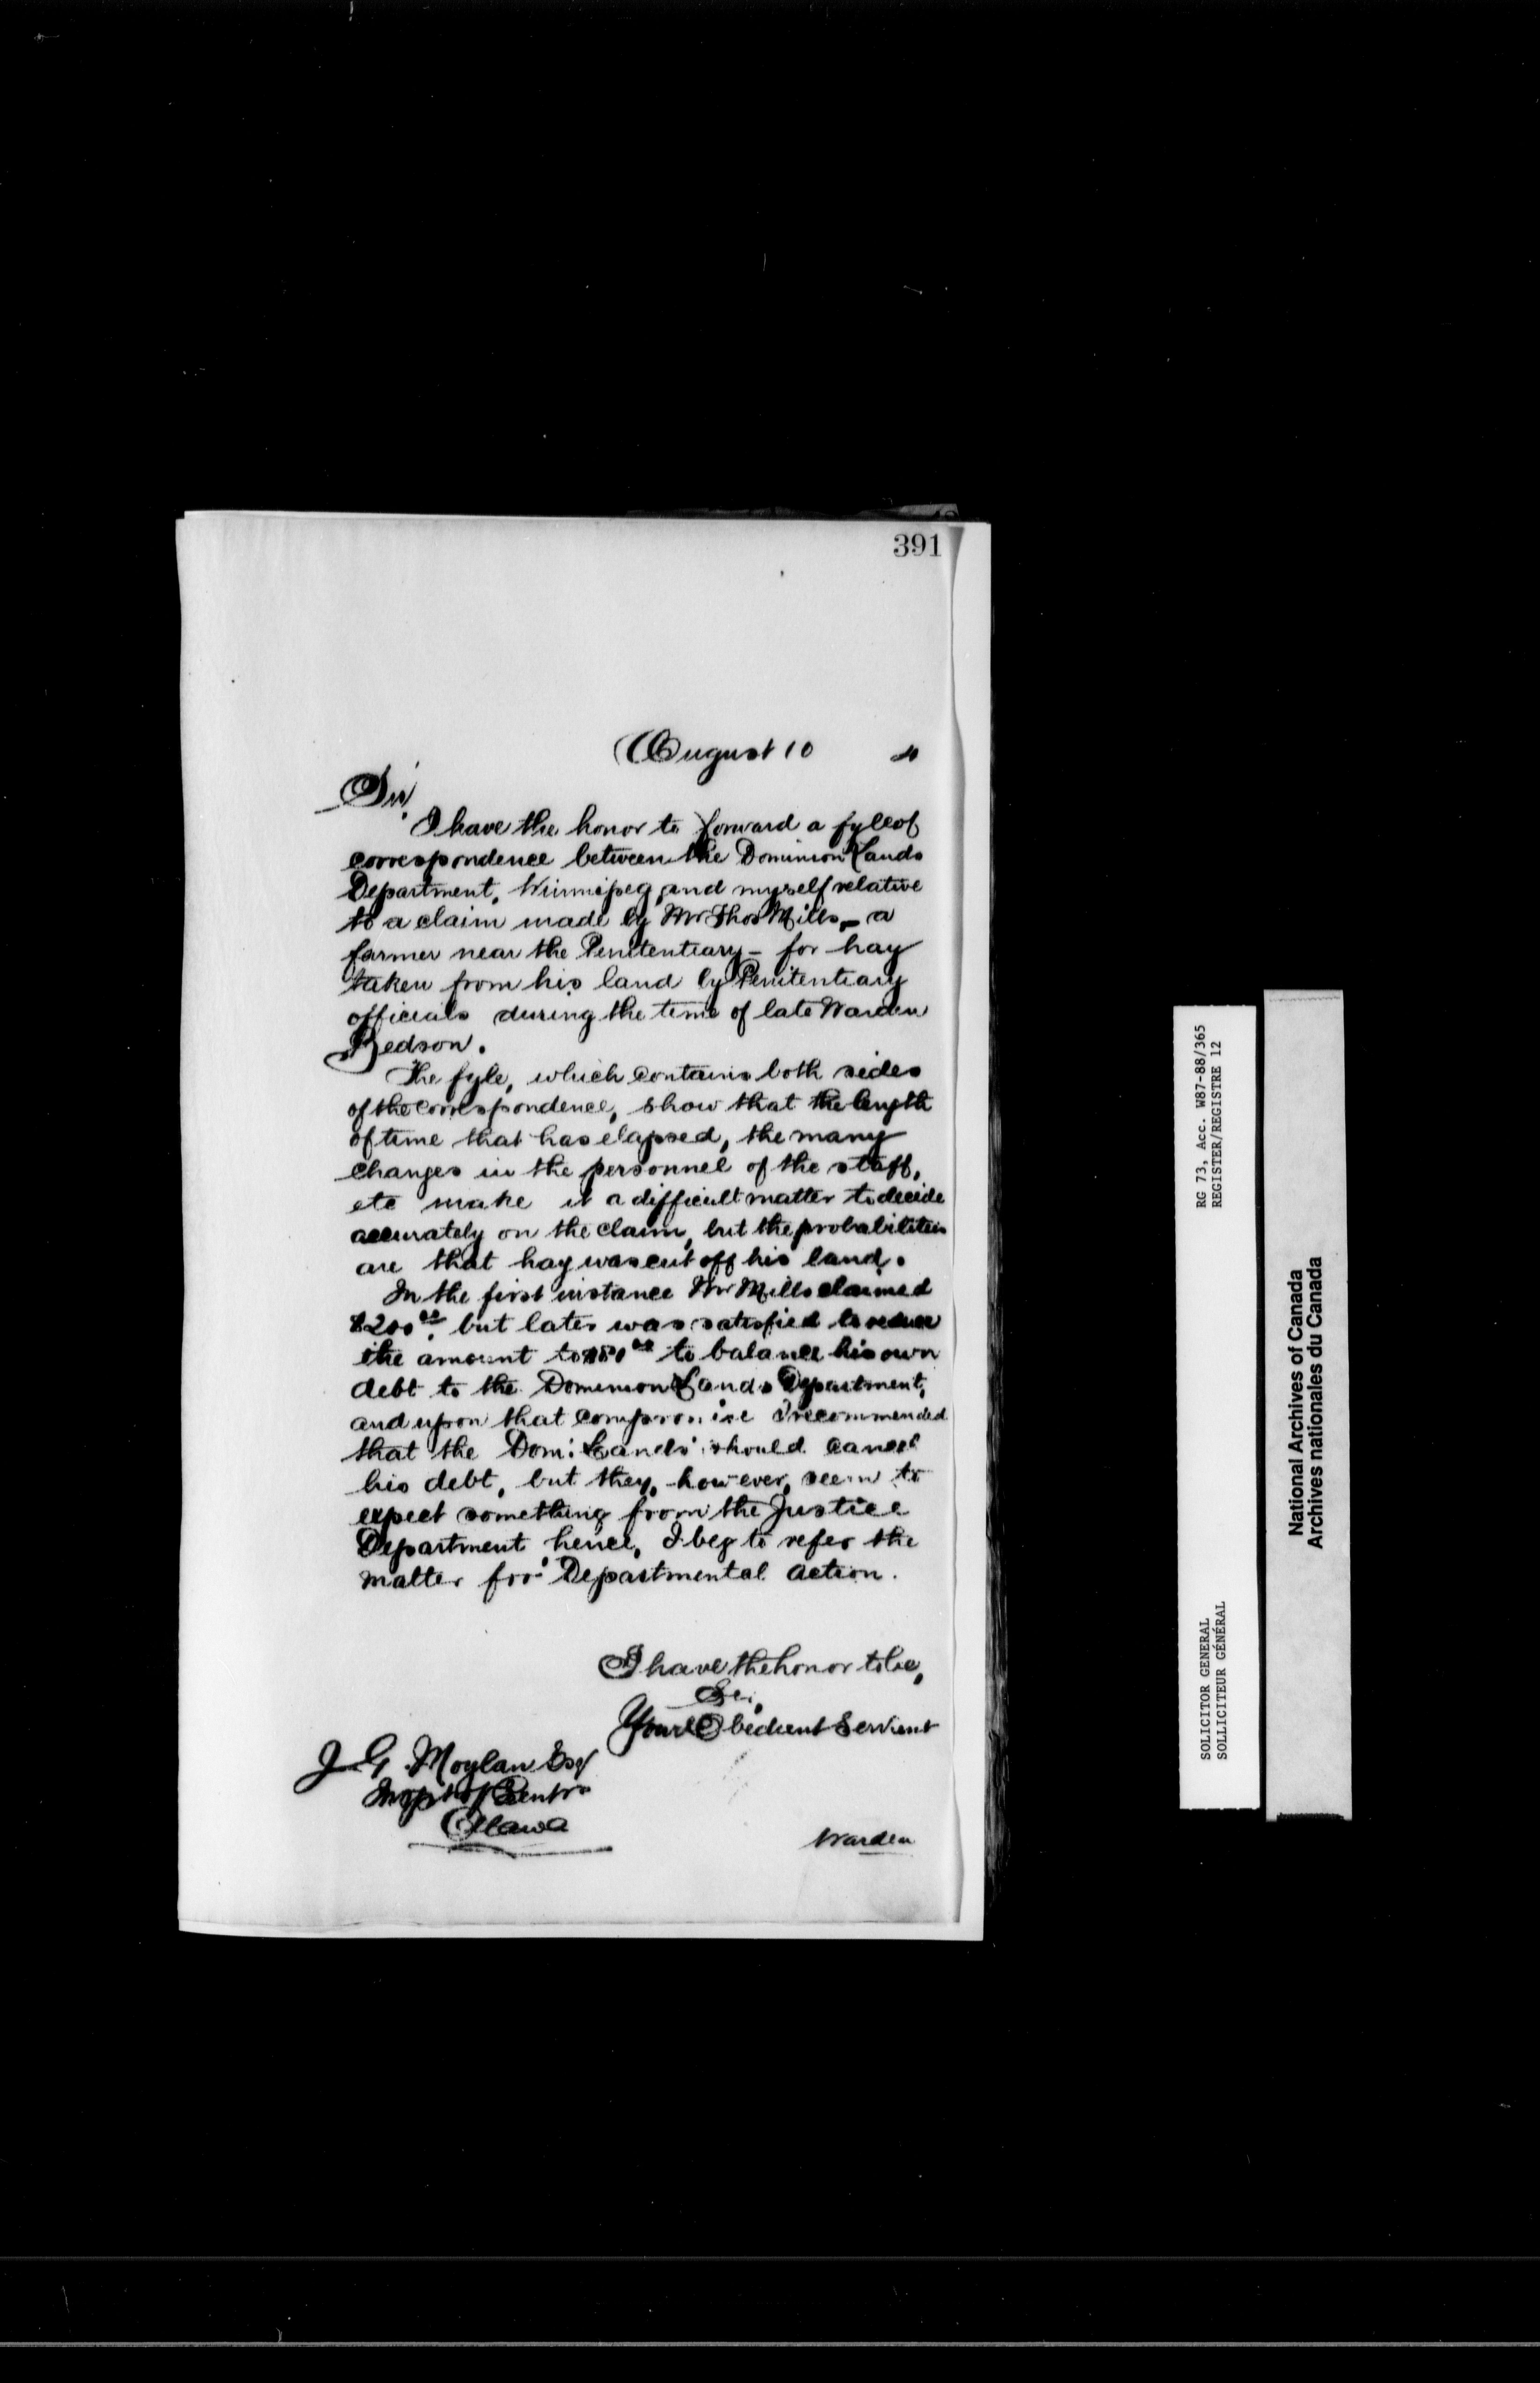 391
August 10 4
Sir,
I have the honor to forward a fyle of
correspondence between the Dominion Lands
Department, Winnipeg, and myself relative
to a claim made by Mr Thos Mills, - a
farmer near the Penitentiary - for hay
taken from his land by Penitentiary
officials during the time of late Warden
Bedson.
The fyle, which contains both sides
of the correspondence, show that the length
of time that has elapsed, the many
changes in the personnel of the staff,
etc make it a difficult matter to decide
accurately on the claim, but the probabilities
are that hay was cut off his land.
In the first instance Mr Mills claimed
$200 00 but later was satisfied to reduce
the amount to to balance his own
debt to the Dominion Lands Department,
and upon that compromise I recommended
that the Dom: Lands should cancel
his debt, but they, however, seem to
expect something from the Justice
Department hence, I beg to refer the
matter for Departmental action.
I have the honor to be,
Sir,
Your Obedient Servant
J. G. Moylan Esq
Inspt of Pentrs
Ottawa
Warden
RG 73, Acc. W87-88/365
REGISTER/REGISTRE 12
SOLICITOR GENERAL
SOLLICITEUR GÉNÉRAL
National Archives of Canada
Archives nationales du Canada